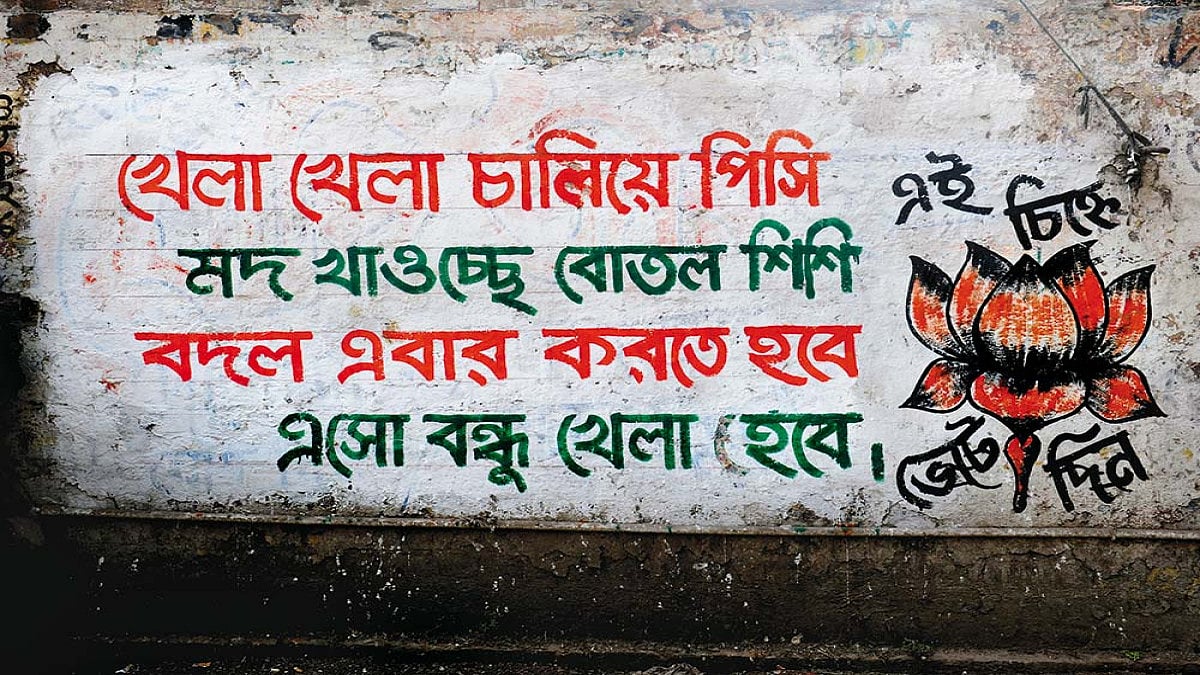 খেলা খেলা চালিয়ে পিসি
মদ খাওচ্ছে বোতল শিশি
বদল এবার করতে হবে
এসো বন্ধু খেলা হবে।
এই চিহ্নে
ভোট দিন